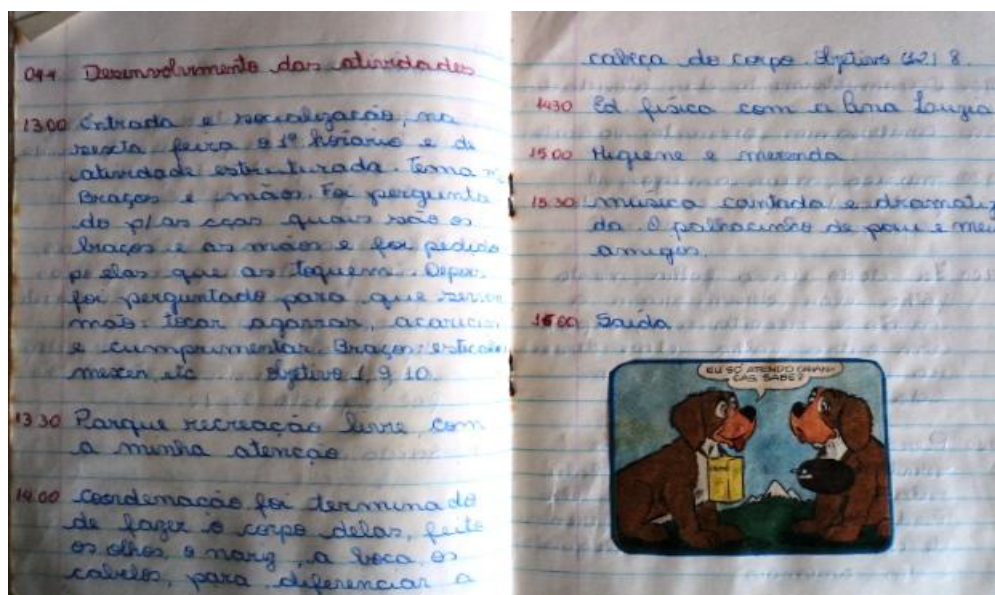 Desenvolvimento das atividades
13:00 Entrada e socialização, na
sexta feira o 1º horário é de
atividade estruturada. Tema
Braços e mãos. Foi pergunta
do p/ as cças quais são os
braços e as mãos e foi pedido
p/ elas que as toquem. Depois
foi perguntado para que servem
mãos: tocar agarrar, acariciar
e cumprimentar. Braços: esticar
mexer, etc objetivo 1, 9, 10.
13 30 Parque recreação livre com
a minha atenção
14:00 Coordenação foi terminado
de fazer o corpo delas, feito
os olhos, o nariz, a boca, os
cabelos, para diferenciar a
cabeça do corpo. Objetivo 8.
1430 Ed física com a Ana Luzia
15:00 Higiene e merenda
15:30 música cantada e dramatiza
da. O palhacinho de pau e meu
amigos.
16:00 Saída
EU SÓ ATENDO CRIAN-
ÇAS, SABE?